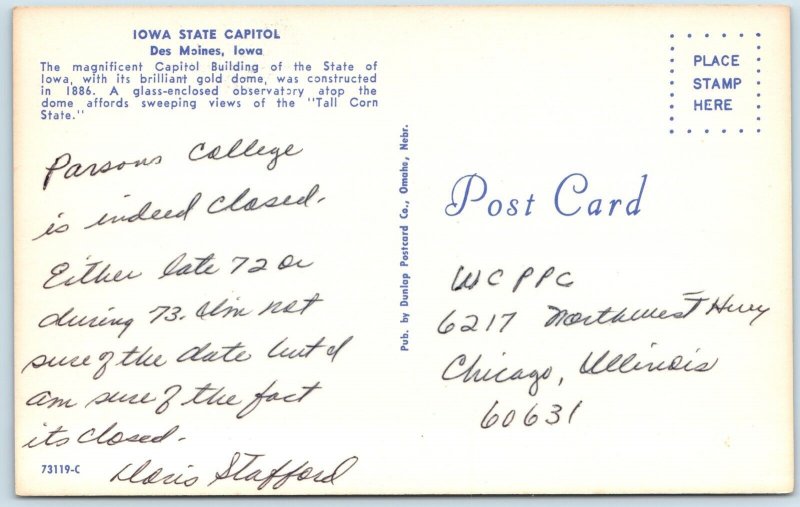 IOWA STATE CAPITOL
Des Moines, Iowa
The magnificent Capitol Building of the State of
Iowa, with its brilliant gold dome, was constructed
in 1886. A glass-enclosed observatory atop the
dome affords sweeping views of the "Tall Corn
State."
Parsons College
is indeed closed.
Either late 72 or
during 73. I'm not
sure of the date but I
am sure of the fact
its closed.
Doris Stafford
73119-C
Pub. by Dunlap Postcard Co., Omaha, Nebr.
PLACE
STAMP
HERE
Post Card
WCPPC
6217 Northwest Hwy
Chicago, Illinois
60631